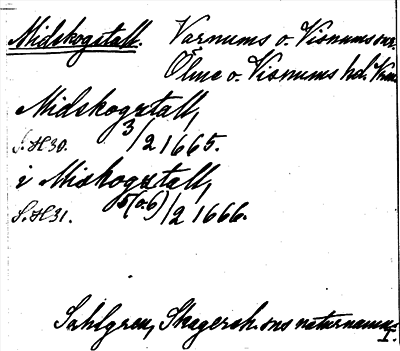 Midskogstall. Varnums o. Visnums snr.
Ölme o. Visnums hd. Vrm.
Midskogztall,
S.H 30. 3/2 1665.
i Miskogztall,
S.H 31. 5(o.6)/2 1666.
Sahlgren, Skagersh. sns naturnamn
I.